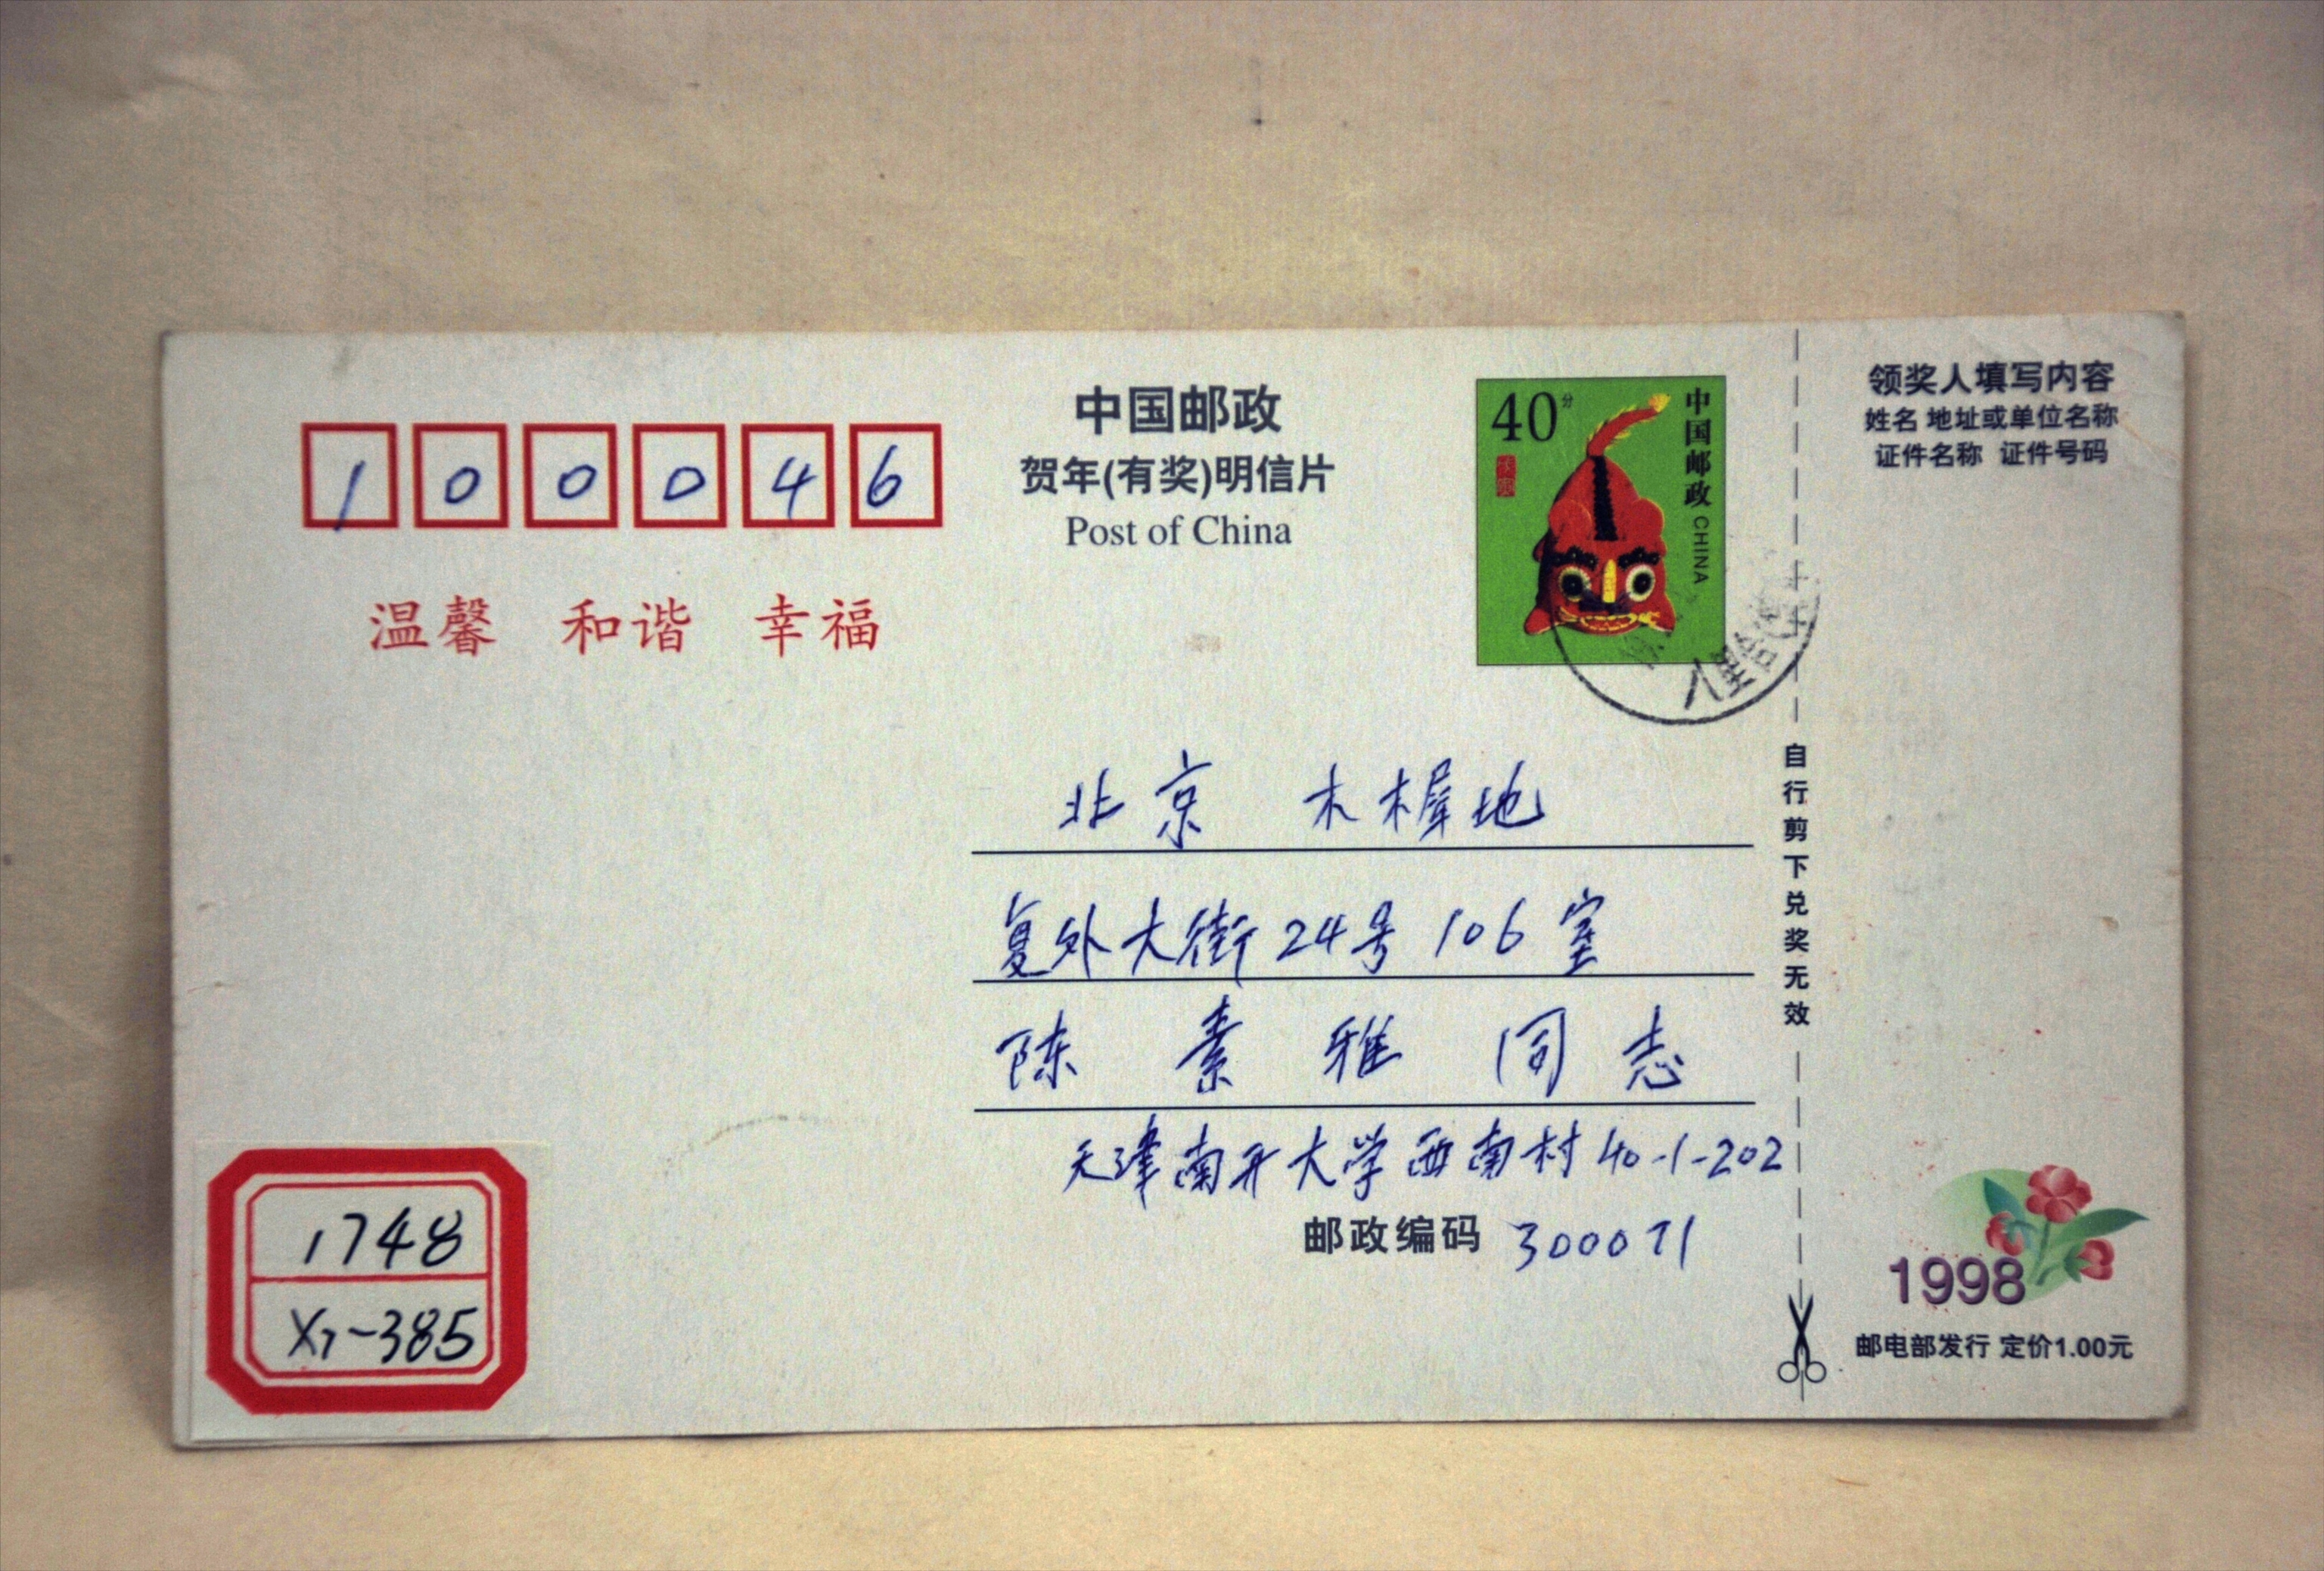 100046
温馨 和谐 幸福
中国邮政
贺年(有奖)明信片
Post of China
40分
中国邮政 CHINA
八里台
领奖人填写内容
姓名 地址或单位名称
证件名称 证件号码
自行剪下兑奖无效
北京 木樨地
复外大街24号106室
陈素雅同志
天津南开大学西南村40-1-202
邮政编码 300071
1748
X1-385
1998
邮电部发行 定价1.00元